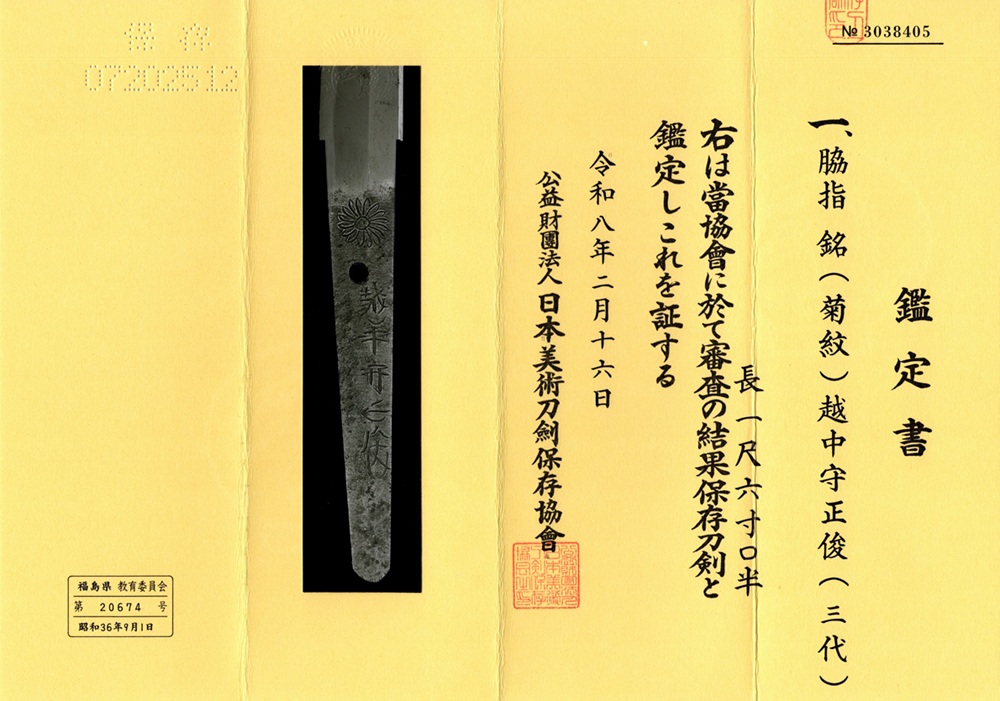 № 3038405
鑑定書
一、脇指 銘(菊紋)越中守正俊(三代)
長一尺六寸〇半
右は當協會に於て審査の結果保存刀剣と
鑑定しこれを証する
令和八年二月十六日
公益財團法人日本美術刀劍保存協會
越中守正俊
保存
07202512
福島県 教育委員会
第 20674 号
昭和36年9月1日